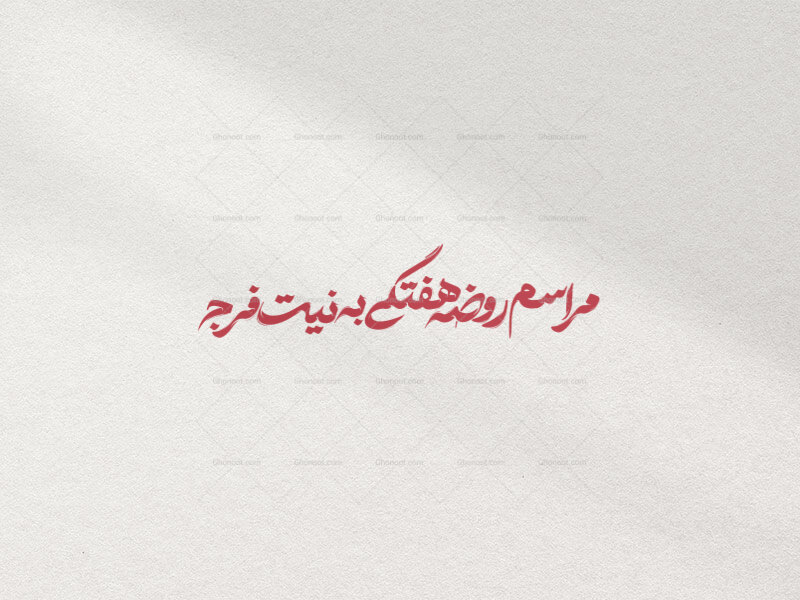 Ghonoot.com Ghonoot.com Ghonoot.com Ghonoot.com Ghonoot.com
Ghonoot.com Ghonoot.com Ghonoot.com Ghonoot.com Ghonoot.com
مراسم روضه هفتگی به نیت فرج
Ghonoot.com Ghonoot.com Ghonoot.com Ghonoot.com Ghonoot.com
Ghonoot.com Ghonoot.com Ghonoot.com Ghonoot.com Ghonoot.com